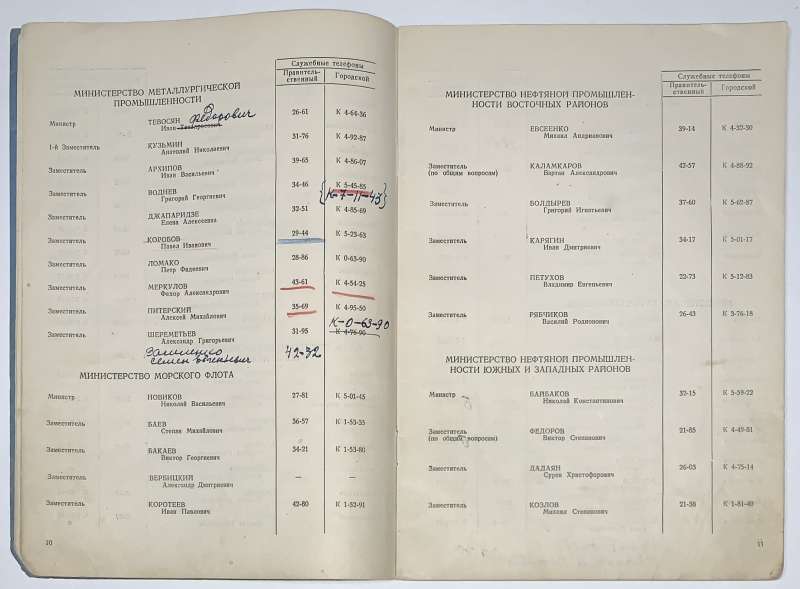 Служебные телефоны
Правитель-
ственный
Городской
МИНИСТЕРСТВО МЕТАЛЛУРГИЧЕСКОЙ
ПРОМЫШЛЕННОСТИ
Министр ТЕВОСЯН 26-61 К 4-64-36
Иван Федорович
1-й Заместитель КУЗЬМИН 31-76 К 4-92-87
Анатолий Николаевич
Заместитель АРХИПОВ 39-65 К 4-86-07
Иван Васильевич
Заместитель ВОДНЕВ 34-46 К 5-45-85
Григорий Георгиевич {К-7-11-43}
Заместитель ДЖАПАРИДЗЕ 32-51 К 4-85-69
Елена Алексеевна
Заместитель КОРОБОВ 29-44 К 5-23-63
Павел Иванович
Заместитель ЛОМАКО 28-86 К 0-63-90
Петр Фадеевич
Заместитель МЕРКУЛОВ 43-61 К 4-54-25
Федор Александрович
Заместитель ПИТЕРСКИЙ 35-69 К 4-95-50
Алексей Михайлович
К-0-63-90
Заместитель ШЕРЕМЕТЬЕВ 31-95 К 4-76-90
Александр Григорьевич
42-32
МИНИСТЕРСТВО МОРСКОГО ФЛОТА
Министр НОВИКОВ 27-81 К 5-01-45
Николай Васильевич
Заместитель БАЕВ 36-57 К 1-53-35
Степан Михайлович
Заместитель БАКАЕВ 34-21 К 1-53-80
Виктор Георгиевич
Заместитель ВЕРБИЦКИЙ — —
Александр Дмитриевич
Заместитель КОРОТЕЕВ 42-80 К 1-52-91
Иван Павлович
10
Служебные телефоны
Правитель-
ственный
Городской
МИНИСТЕРСТВО НЕФТЯНОЙ ПРОМЫШЛЕН-
НОСТИ ВОСТОЧНЫХ РАЙОНОВ
Министр ЕВСЕЕНКО 39-14 К 4-32-30
Михаил Андрианович
Заместитель КАЛАМКАРОВ 42-57 К 4-88-92
(по общим вопросам) Вартан Александрович
Заместитель БОЛДЫРЕВ 37-60 К 5-62-87
Григорий Игнатьевич
Заместитель КАРЯГИН 34-17 К 5-01-17
Иван Дмитриевич
Заместитель ПЕТУХОВ 22-73 К 5-12-83
Владимир Евгеньевич
Заместитель РЯБЧИКОВ 26-43 К 3-76-18
Василий Родионович
МИНИСТЕРСТВО НЕФТЯНОЙ ПРОМЫШЛЕН-
НОСТИ ЮЖНЫХ И ЗАПАДНЫХ РАЙОНОВ
Министр БАЙБАКОВ 32-15 К 5-59-22
Николай Константинович
Заместитель ФЕДОРОВ 21-85 К 4-49-81
(по общим вопросам) Виктор Степанович
Заместитель ДАДАЯН 26-05 К 4-75-14
Сурен Христофорович
Заместитель КОЗЛОВ 21-36 К 1-81-40
Михаил Степанович
11